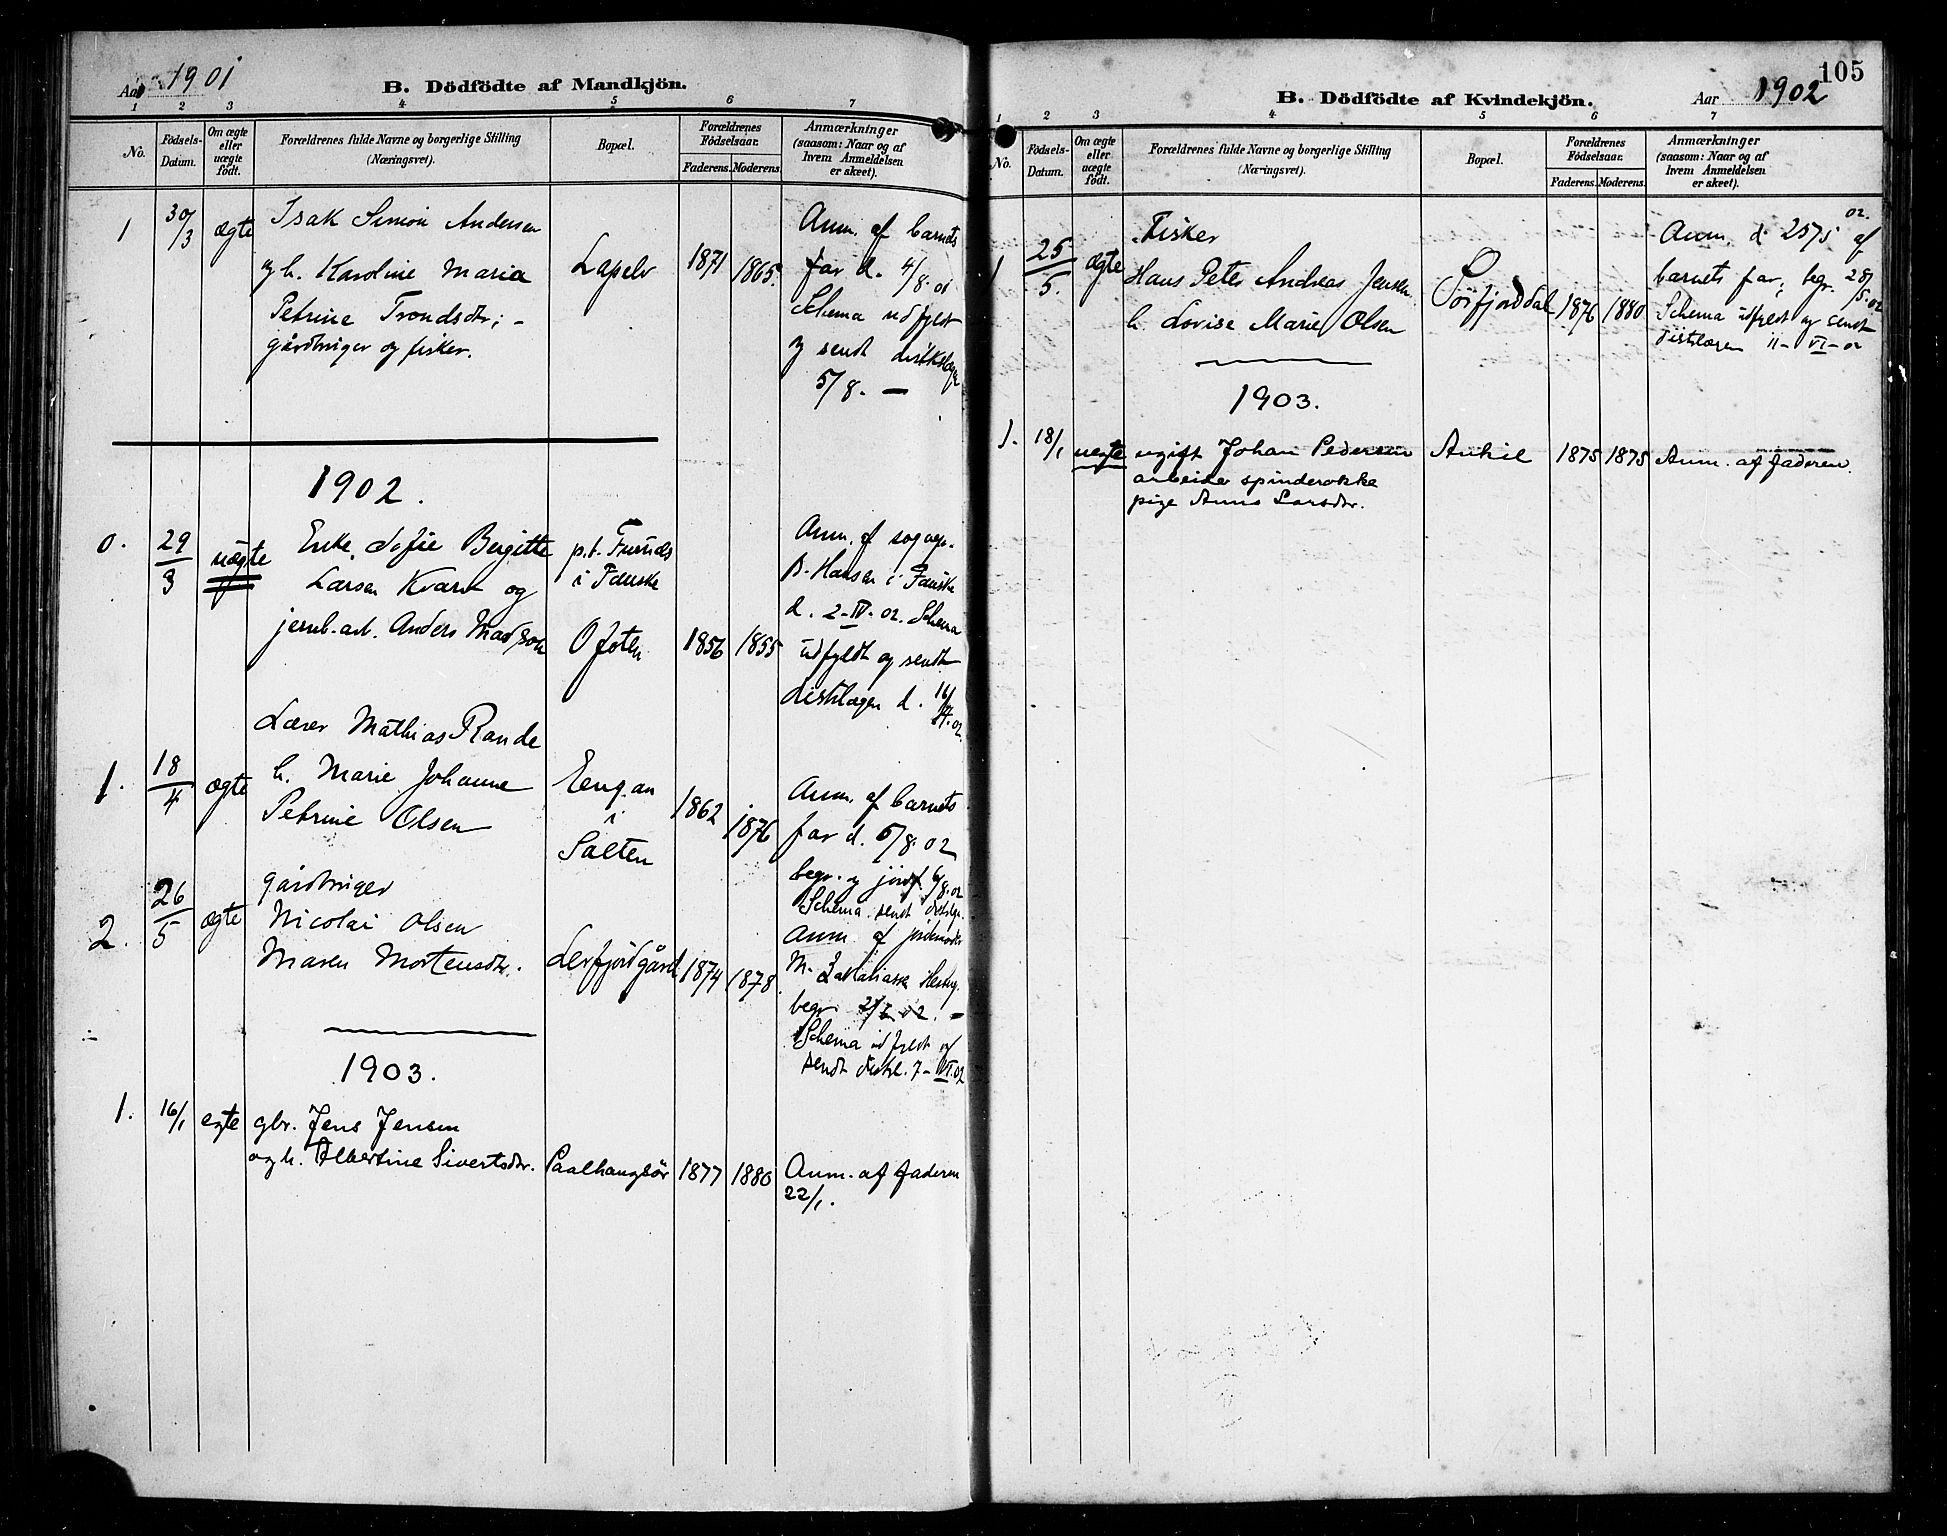 Aar 1901
B. Dödfödte af Mandkjön.
1 2 3 4 5 6 7
No.
Födsels-Datum.
Om ægte eller uægte födt.
Forældrenes fulde Navne og borgerlige Stilling
(Næringsvei).
Bopæl.
Forældrenes Födselsaar.
Faderens. Moderens.
Anmærkninger
(saasom: Naar og af
hvem Anmeldelsen
er skeet).
1 30/3 ægte
Isak Simon Andersen
og h. Karoline Maria
Petrine Trondsdtr; -
gårdbruger og fisker.
Lapelv 1871 1865.
Anm. af barnets
far d. 4/8.01
Schema udfyldt
og sendt
5/8. —
1902.
0. 29/3 uægte
Enke Sofie Bergitte
Larsen Kvarv og
jernb.arb. Anders Madsson
p.t.
i Fauske
Ofoten 1856 1855
Anm. af sognepr.
B. Hansen i Fauske
d. 2-IV-02. Schema
udfyldt og sendt
distrlægen d. 16/IV.02.
1. 18/4 ægte
Lærer Mathias Rande
h. Marie Johanne
Petrine Olsen
Eng.an
i
Salten
1862 1876
Anm. af barnets
far d. 6/8.02
begr. og jordf. 6/8.02
Schema sendt
2. 26/5 ægte
gårdbruger
Nicolai Olsen
Maren Mortensdtr.
Lerfjordgård 1874 1878
Anm. af jordemoder
M.
begr.
Schema udfyldt og
sendt distrl. 7-VI.02
1903.
1. 16/1 egte
gbr. Jens Jensen
og h. Albertine Sivertsdtr.
Paalhaugsör 1877 1880
Anm. af faderen
22/1.
105
B. Dödfödte af Kvindekjön.
Aar 1902
1 2 3 4 5 6 7
No.
Födsels-Datum.
Om ægte eller uægte födt.
Forældrenes fulde Navne og borgerlige Stilling
(Næringsvei).
Bopæl.
Forældrenes Födselsaar.
Faderens. Moderens.
Anmærkninger
(saasom: Naar og af
hvem Anmeldelsen
er skeet).
1 25/5. ægte
Fisker
Hans Peter Andreas Jensen
h. Lovise Marie Olsen
Sörfjorddal 1876 1880
Anm. d. 25/5 02. af
barnets far; begr. 28/5.02
Schema udfyldt og sendt
distrlægen 11-VI-02
1903.
1. 18/1 uegte
ugift Johan Pedersen
arbeider spinderokke
pige Anna Larsdtr.
1875 1875 Anm. af faderen.